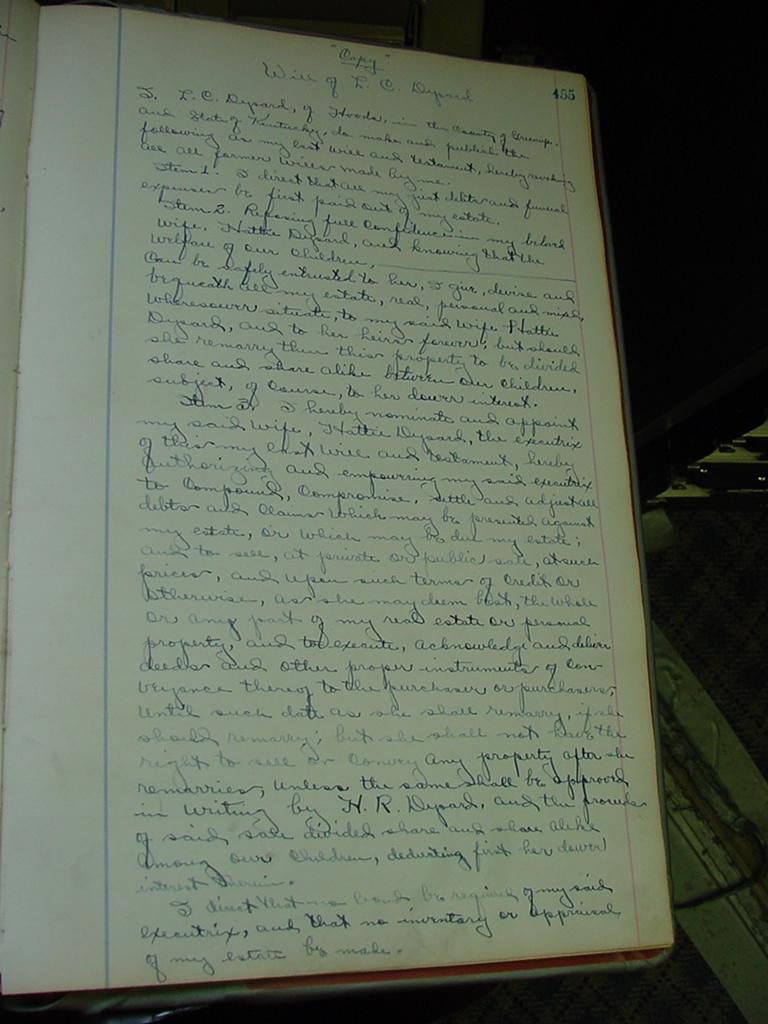 "Copy"
455
Will of L. C. Dysard
I, L. C. Dysard, of Hoods, in the County of Greenup,
and State of Kentucky, do make and publish the
following as my last will and testament, hereby revoking
all all former wills made by me.
Item 1. I direct that all my just debts and funeral
expenses be first paid out of my estate.
Item 2. Reposing full confidence in my beloved
wife, Hattie Dysard, and knowing that the
welfare of our children,
can be safely entrusted to her, I give, devise and
bequeath all my estate, real, personal and mixed,
wheresoever situate, to my said wife Hattie
Dysard, and to her heirs forever; but should
she remarry then this property to be divided
share and share alike between our children,
subject, of course, to her dower interest.
Item 3. I hereby nominate and appoint
my said wife, Hattie Dysard, the executrix
of this my last will and testament, hereby
authorizing and empowering my said executrix
to compound, compromise, settle and adjust all
debts and claims which may be presented against
my estate, or which may be due my estate;
and to sell, at private or public sale, at such
prices, and upon such terms of credit or
otherwise, as she may deem best, the whole
or any part of my real estate or personal
property, and to execute, acknowledge and deliver
deeds and other proper instruments of con-
veyance thereof to the purchaser or purchasers,
until such date as she shall remarry, if she
should remarry; but she shall not have the
right to sell or convey any property after she
remarries, unless the same shall be approved
in writing by H. R. Dysard, and the proceeds
of said sale divided share and share alike
among our children, deducting first her dower
interest therein.
I direct that no bond be required of my said
executrix, and that no inventory or appraisal
of my estate be made.